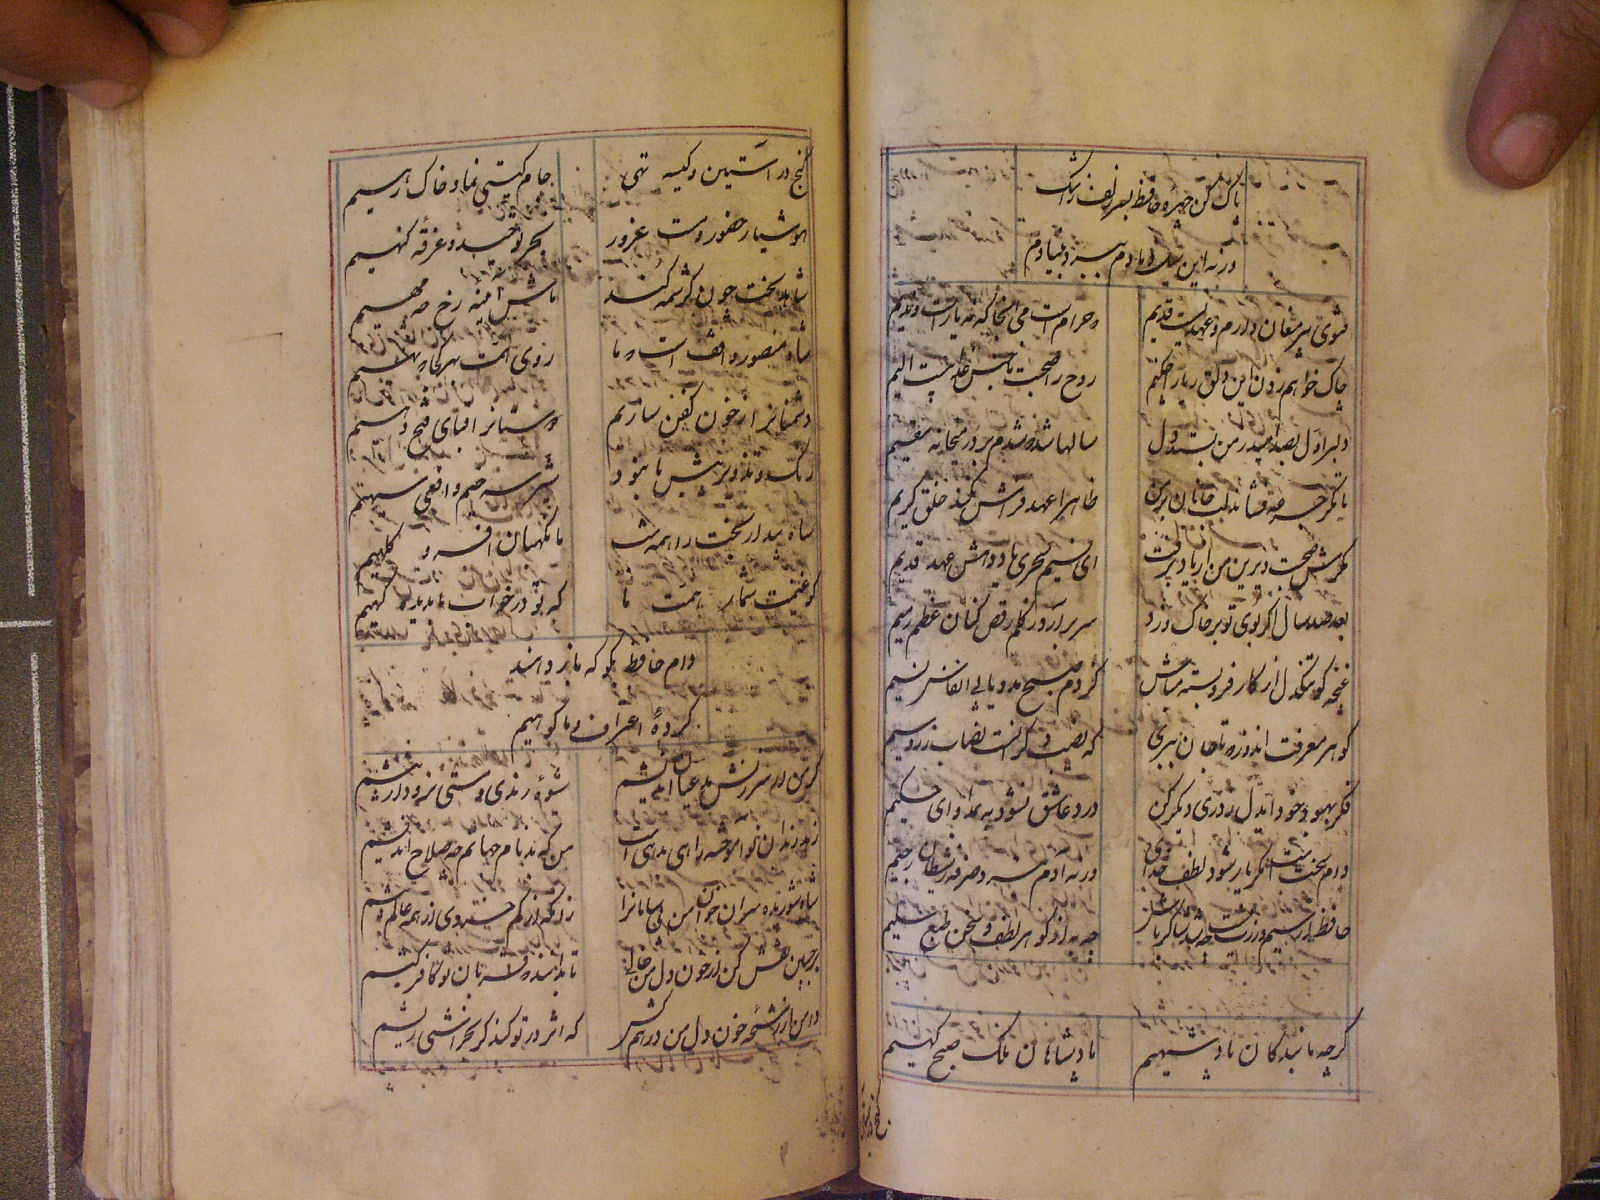 پاک کن چهرهٔ حافظ بسر زلف ز اشک
ورنه این سیل دمادم ببرد بنیادم
فتوی پیر مغان دارم و عهدیست قدیم
که حرام است می آنجا که نه یار است ندیم
چاک خواهم زدن این دلق ریایی چکنم
روح را صحبت ناجنس عذابیست الیم
دلبر اول بصد امید ز من بستد دل
سالها شد که شدم بر در میخانه مقیم
تا مگر جرعه فشاند لب جانان بر من
ظاهرا عهد فرامش نکند خلق کریم
مگرش صحبت دیرین من از یاد برفت
ای نسیم سحری یاد دهش عهد قدیم
بعد صد سال اگر بوی تو بر خاک وزد
سر برآرد ز گلم رقص کنان عظم رمیم
غنچه گو تنگدل از کار فروبسته مباش
کز دم صبح مدد یابی و انفاس نسیم
گوهر معرفت اندوز که با جان ببری
که نصیب دگرانست نصاب زر و سیم
فکر بهبود خود ای دل ز دری دیگر کن
درد عاشق نشود به بمداوای حکیم
دام سختست مگر یار شود لطف خدای
ورنه آدم نبرد صرفه ز شیطان رجیم
حافظ ار سیم و زرت نیست چه شد شاکر باش
چه به از گوهر لطف سخن و طبع سلیم
گرچه ما بندگان پادشهیم
پادشاهان ملک صبح گهیم
گنج در
گنج در آستین و کیسه تهی
جام گیتی نما و خاک رهیم
هوشیار حضور و مست غرور
بحر توحید و غرقهٔ گنهیم
شاهد بخت چون کرشمه کند
ماش آیینهٔ رخ چو مهیم
شاه منصور واقف است که ما
روی همت بهر کجا که نهیم
دشمنانرا ز خون کفن سازیم
دوستانرا قبای فتح دهیم
رنگ تزویر پیش ما نبود
شیر سرخیم و افعی سیهیم
شاه بیدار بخت را همه شب
ما نگهبان افسر و کلهیم
گو غنیمت شمار همت ما
که تو در خواب و ما بدیده گهیم
وام حافظ بگو که باز دهند
کردهٔ اعتراف و ما گوهیم
گر من از سرزنش مدعیان اندیشم
شیوهٔ رندی و مستی نرود از پیشم
زهد رندان نوآموخته راهی بدهی است
من که بدنام جهانم چه صلاح اندیشم
شاه شوریده سران خوان من بی سامانرا
زانکه در کم خردی از همه عالم بیشم
بر جبین نقش کن از خون دل من خالی
تا بدانند که قربان تو کافر کیشم
دامن از رشحهٔ خون دل من در هم کش
که اثر در تو کند گر بخراشی ریشم